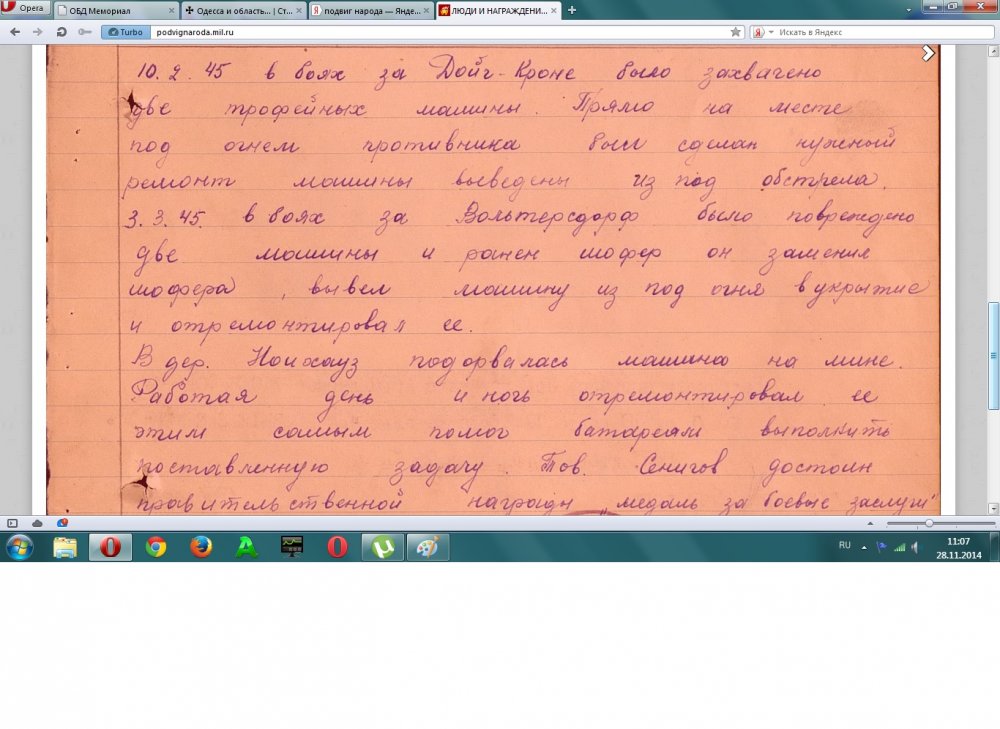 Opera
ОБД Мемориал
Одесса и область... | Ст...
подвиг народа — Янде...
ЛЮДИ И НАГРАЖДЕНИ...
Turbo
podvignaroda.mil.ru
Искать в Яндекс
10. 2. 45 в боях за Дойг-Кроне было захвачено
две трофейных машины. Прямо на месте
под огнем противника был сделан нужный
ремонт машины выведены из под обстрела.
3. 3. 45. в боях за Вольтерсдорф было повреждено
две машины и ранен шофер он заменил
шофера, вывел машину из под огня в укрытие
и отремонтировал ее.
В дер. Ноихауз подорвалась машина на мине.
Работая день и ночь отремонтировал ее
этим самым помог батареям выполнить
поставленную задачу. Тов. Сенигов достоин
правительственной награды „медаль за боевые заслуги"
RU
11:07
28.11.2014